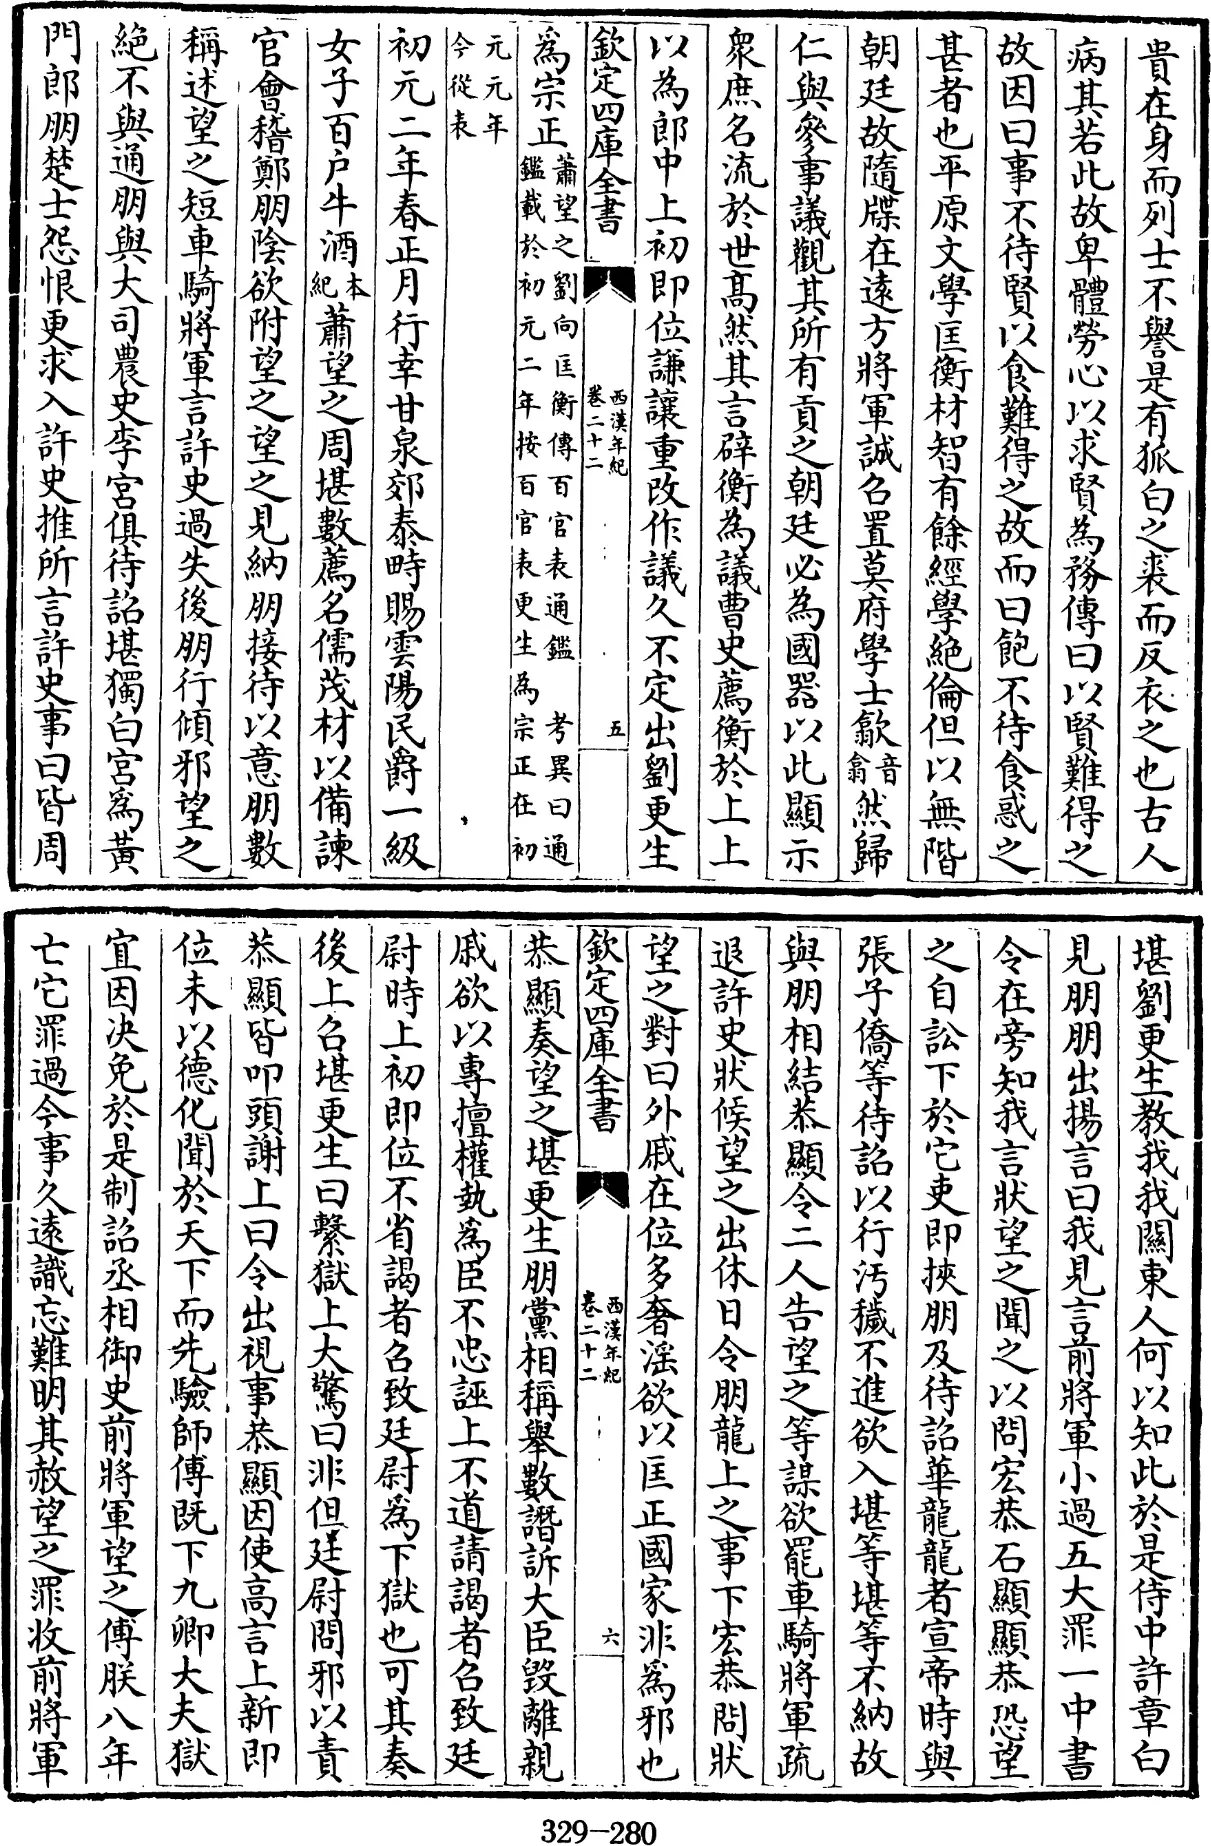 貴在身而列士不譽是有狐白之裘而反衣之也古人
病其若此故卑體勞心以求賢為務傳曰以賢難得之
故因曰事不待賢以食難得之故而曰飽不待食惑之
甚者也平原文學匡衡材智有餘經學絶倫但以無階
朝廷故隨牒在遠方將軍誠召置莫府學士歙音翕然歸
仁與參事議觀其所有貢之朝廷必為國器以此顯示
衆庶名流於世髙然其言辟衡為議曹史薦衡於上上
以為郎中上初即位謙讓重改作議久不定出劉更生
欽定四庫全書
西漢年紀
卷二十二
五
為宗正蕭望之劉向匡衡傳百官表通鑑 考異曰通
鑑載於初元二年按百官表更生為宗正在初
元元年
今從表
初元二年春正月行幸甘泉郊泰畤賜雲陽民爵一級
女子百户牛酒本紀蕭望之周堪數薦名儒茂材以備諫
官會稽鄭朋陰欲附望之望之見納朋接待以意朋數
稱述望之短車騎將軍言許史過失後朋行傾邪望之
絶不與通朋與大司農史李宮俱待詔堪獨白宮為黃
門郎朋楚士怨恨更求入許史推所言許史事曰皆周
堪劉更生教我我關東人何以知此於是侍中許章白
見朋朋出揚言曰我見言前將軍小過五大罪一中書
令在旁知我言狀望之聞之以問宏恭石顯顯恭恐望
之自訟下於它吏即挾朋及待詔華龍龍者宣帝時與
張子僑等待詔以行汚穢不進欲入堪等堪等不納故
與朋相結恭顯令二人告望之等謀欲罷車騎將軍疏
退許史狀候望之出休日令朋龍上之事下宏恭問狀
望之對曰外戚在位多奢淫欲以匡正國家非為邪也
欽定四庫全書
西漢年紀
卷二十二
六
恭顯奏望之堪更生朋黨相稱舉數譖訴大臣毀離親
戚欲以專擅權埶為臣不忠誣上不道請謁者召致廷
尉時上初即位不省謁者召致廷尉為下獄也可其奏
後上召堪更生曰繫獄上大驚曰非但廷尉問邪以責
恭顯皆叩頭謝上曰令出視事恭顯因使高言上新即
位未以德化聞於天下而先驗師傅既下九卿大夫獄
宜因決免於是制詔丞相御史前將軍望之傅朕八年
亡它罪過今事久遠識忘難明其赦望之罪收前將軍
329-280